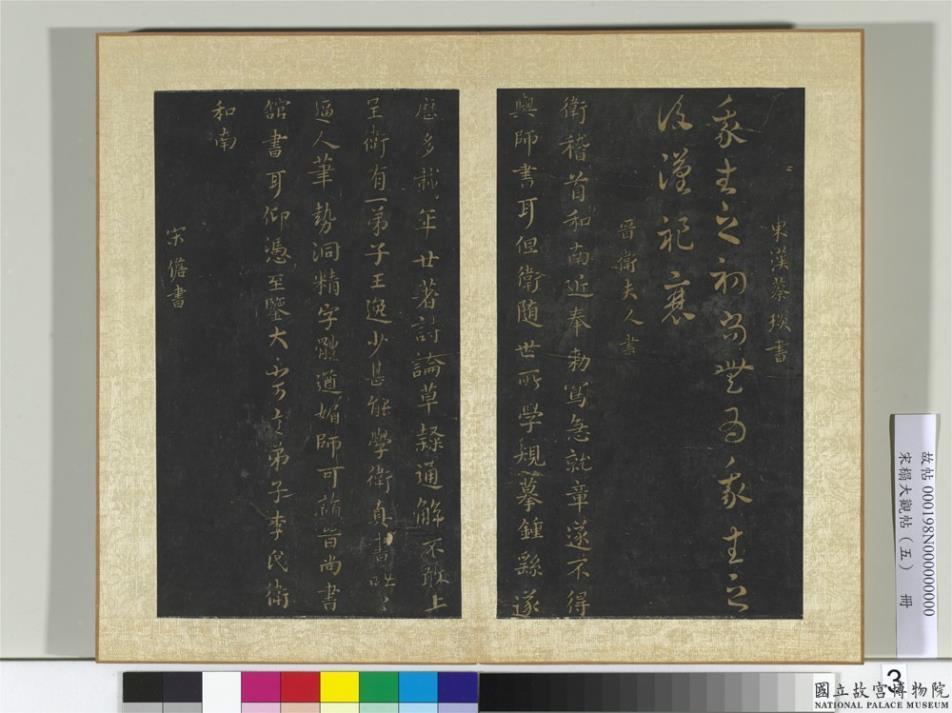 東漢蔡琰書
我生之初尚無為我生之
後漢祚衰
晉衛夫人書
衛稽首和南近奉勅寫急就章遂不得
與師書耳但衛隨世所學規摹鍾繇遂
歷多載年廿著詩論草隸通解不敢上
呈衛有一弟子王逸少甚能學衛真書咄咄
逼人筆勢洞精字體遒媚師可詣晉尚書
舘書耳仰憑至鑒大不可言弟子李氏衛
和南
宋儋書
故帖000198N000000000
宋榻大觀帖(五) 冊
3
國立故宮博物院
NATIONAL PALACE MUSEUM